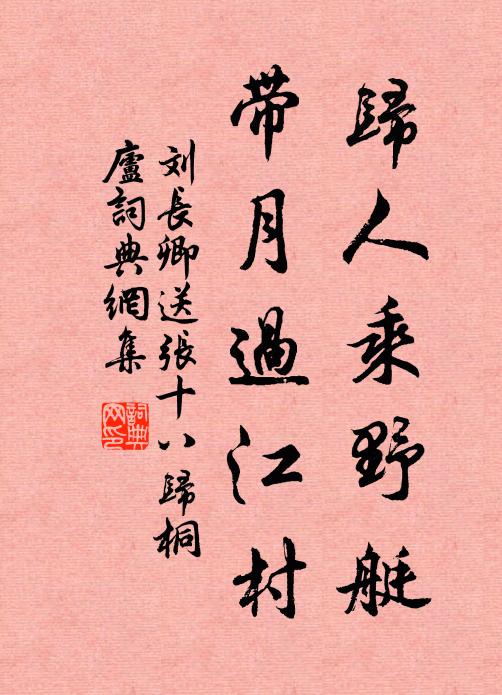 歸人乘野艇
帶月過江村
刘長卿送張十八歸桐
廬詞典網集
詞典
网印